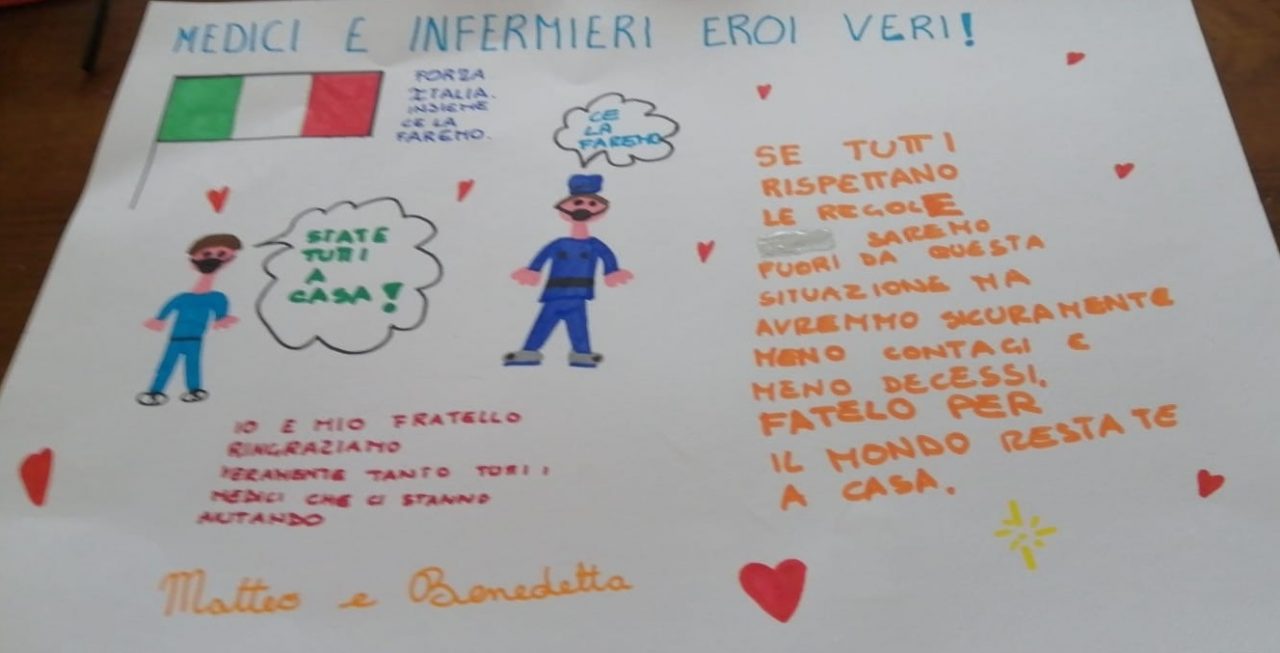 MEDICI E INFERMIERI EROI VERI!
FORZA
ITALIA.
INSIEME
CE LA
FAREMO.
CE
LA
FAREMO
STATE
TUTTI
A
CASA!
IO E MIO FRATELLO
RINGRAZIAMO
VERAMENTE TANTO TUTTI I
MEDICI CHE CI STANNO
AIUTANDO
Matteo e Benedetta
SE TUTTI
RISPETTANO
LE REGOLE
SAREMO
FUORI DA QUESTA
SITUAZIONE MA
AVREMMO SICURAMENTE
MENO CONTAGI E
MENO DECESSI.
FATELO PER
IL MONDO RESTATE
A CASA.